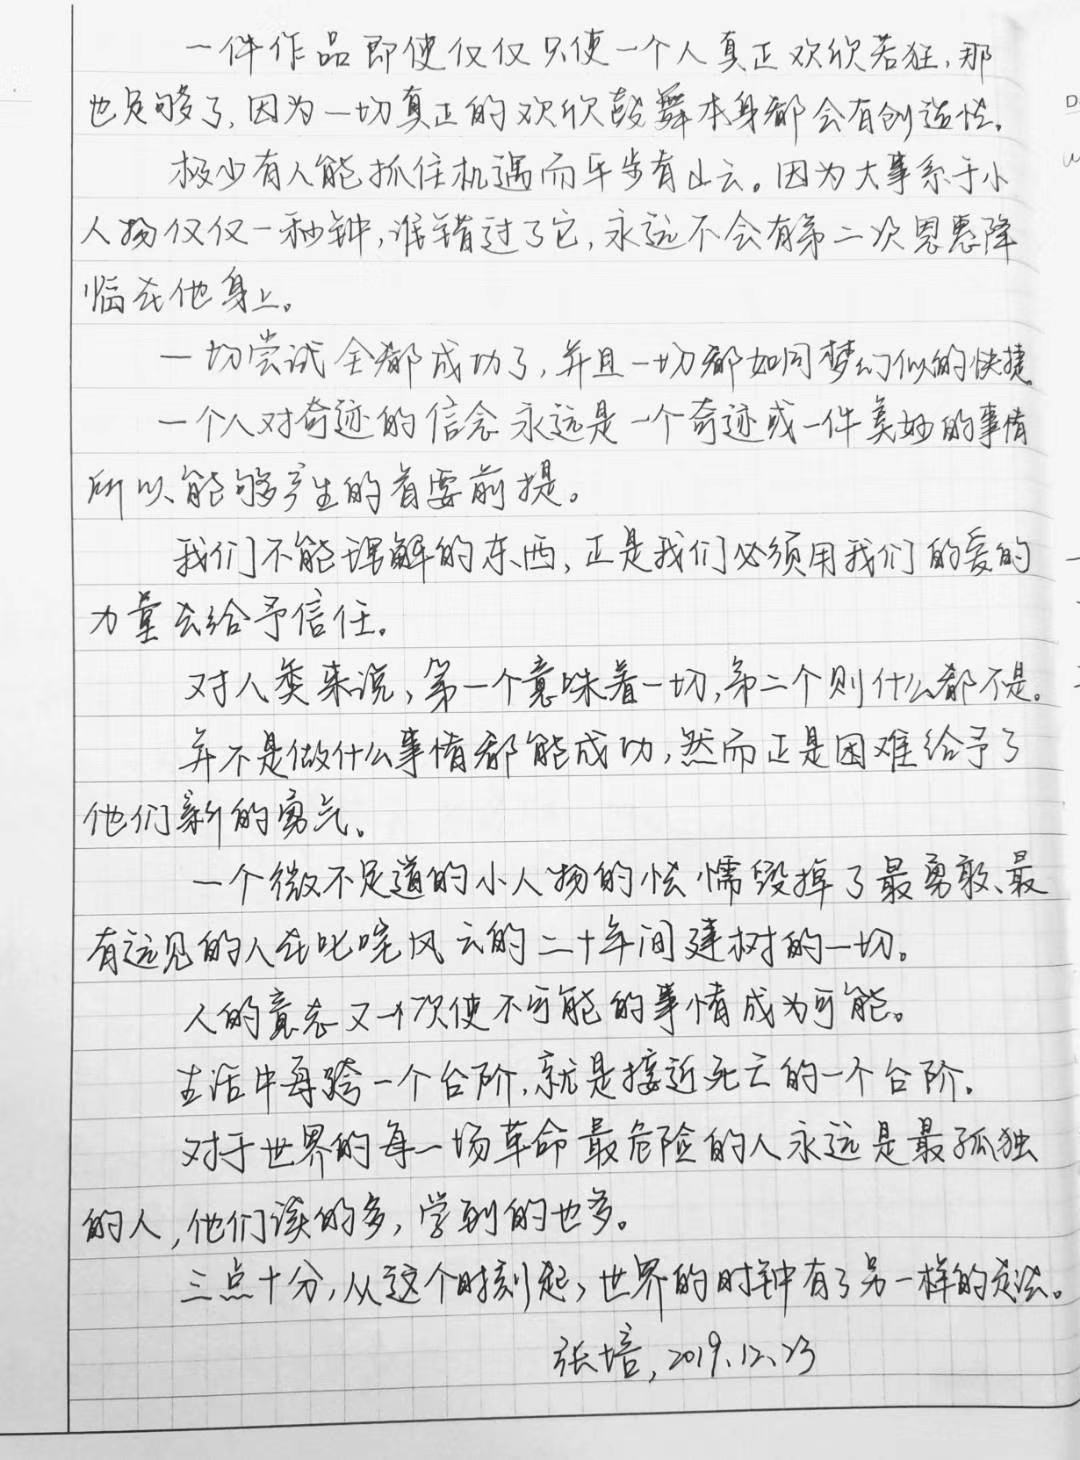 一件作品即使仅仅只使一个人真正欢欣若狂,那
也足够了,因为一切真正的欢欣鼓舞本身都会有创造性。
极少有人能抓住机遇而平步青云。因为大事系于小
人物仅仅一秒钟,谁错过了它,永远不会有第二次恩惠降
临在他身上。
一切尝试全都成功了,并且一切都如同梦幻似的快捷
一个人对奇迹的信念永远是一个奇迹或一件美妙的事情
所以能够产生的首要前提。
我们不能理解的东西,正是我们必须用我们的爱的
力量去给予信任。
对人类来说,第一个意味着一切,第二个则什么都不是。
并不是做什么事情都能成功,然而正是困难给予了
他们新的勇气。
一个微不足道的小人物的怯懦毁掉了最勇敢、最
有远见的人在叱咤风云的二十年间建树的一切。
人的意志又一次使不可能的事情成为可能。
生活中再跨一个台阶,就是接近死亡的一个台阶。
对于世界的每一场革命最危险的人永远是最孤独
的人,他们读的多,学到的也多。
三点十分,从这个时刻起,世界的时钟有了另一样的走法。
张培,2019.12.23
D